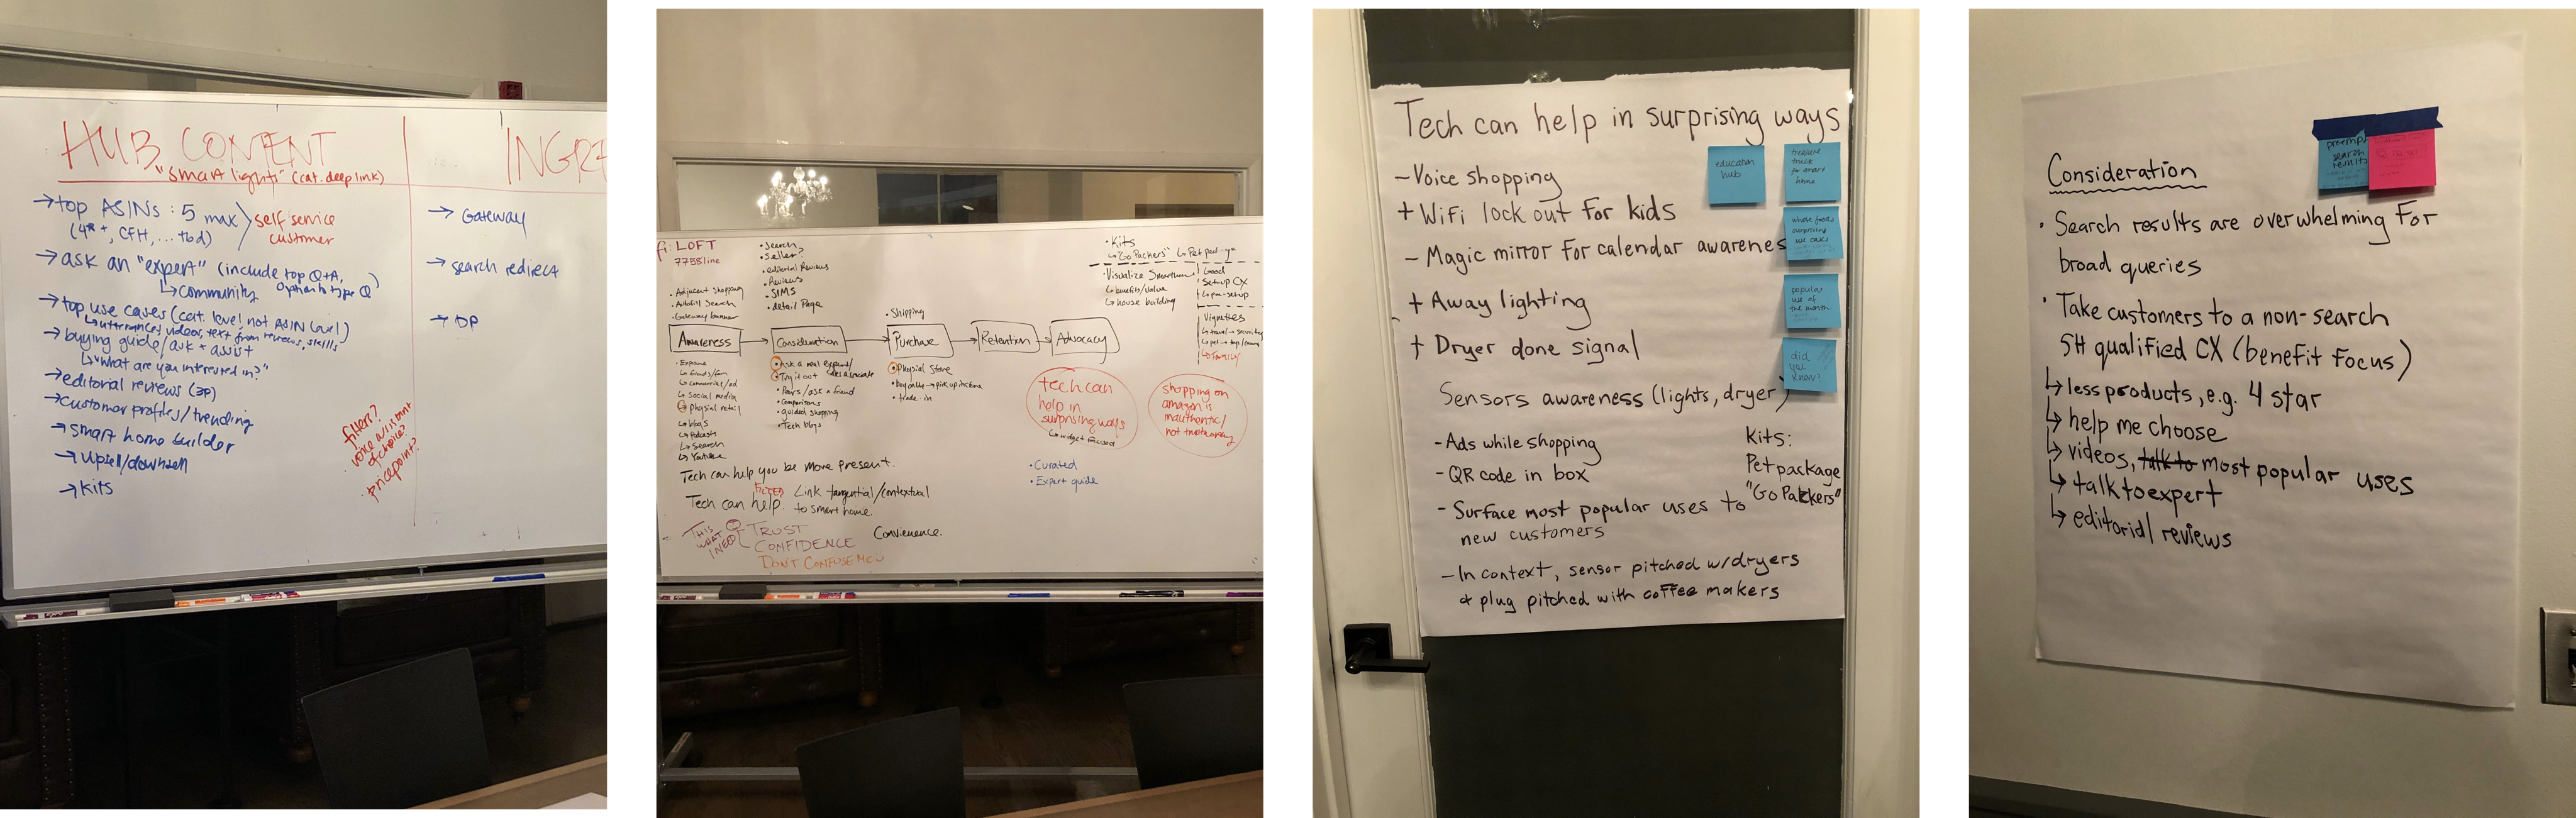 HUB CONTENT
"smart lights" (cat. deep link)
→ top ASINs : 5 max
(4*+, CFH, ... tbd)
self service
customer
→ ask an "expert" (include top Q+A,
↳ community option to type Q)
→ top use cases (cat. level not ASIN level)
↳ utterances, videos, text from reviews, skills
→ buying guide/ask + assist
↳ "what are you interested in?"
→ editorial reviews (3P)
→ customer profiles/trending
→ smart home builder
→ upsell/downsell
→ kits
filters?
of choice?
· pricepoint?
INGRE
→ Gateway
→ search redirect
→ DP
fi: LOFT
7758line
• Adjacent shopping
• Autofill Search
• Gateway banner
• Search
• Seller?
• editorial Reviews
• Reviews
• SIMS
• detail Page
• Shipping
• Kits
↳ "Go Packers" ↳ Pet
• Visualize Smarthome
↳ benefits/value
↳ house building
Good
Setup CX
↳ pre-setup
Vignettes
↳ travel → security
↳ Family
Awareness
Consideration
Purchase
Retention
Advocacy
↳ friends/fam
↳ commercial/ad
↳ Social media
↳ physical retail
↳ blogs
↳ Podcasts
↳ Search
↳ Youtube
• Ask a real expert/
• Try it out
• Pairs/ask a friend
• Comparisons
• guided shopping
• Tech blogs
• Physical Store
• trade-in
tech can
help in
surprising ways
↳ widget focused
shopping on
amazon is
inauthentic/
not trustworthy
Tech can help you be more present.
FILTER
Tech can help. Link tangential/contextual
to smart home.
• Curated
• Expert guide
THIS
WHAT
I NEED
TRUST
CONFIDENCE
DON'T CONFUSE ME
Convenience.
Tech can help in surprising ways
- Voice shopping
+ WiFi lock out for kids
- Magic mirror for calendar awarenes
+ Away lighting
+ Dryer done signal
Sensors awareness (lights, dryer)
- Ads while shopping
- QR code in box
- Surface most popular uses to
new customers
- In context, sensor pitched w/dryers
+ plug pitched with coffee makers
Kits:
Pet package
"Go Packers"
education
hub
treasure
truck
for smart
home
whole foods
surprising
popular
use of
the month
did
you
know?
Consideration
preempt
search
results
• Search results are overwhelming for
broad queries
• Take customers to a non-search
SH qualified CX (benefit focus)
↳ less products, e.g. 4 star
↳ help me choose
↳ videos, talk to most popular uses
↳ talk to expert
↳ editorial reviews